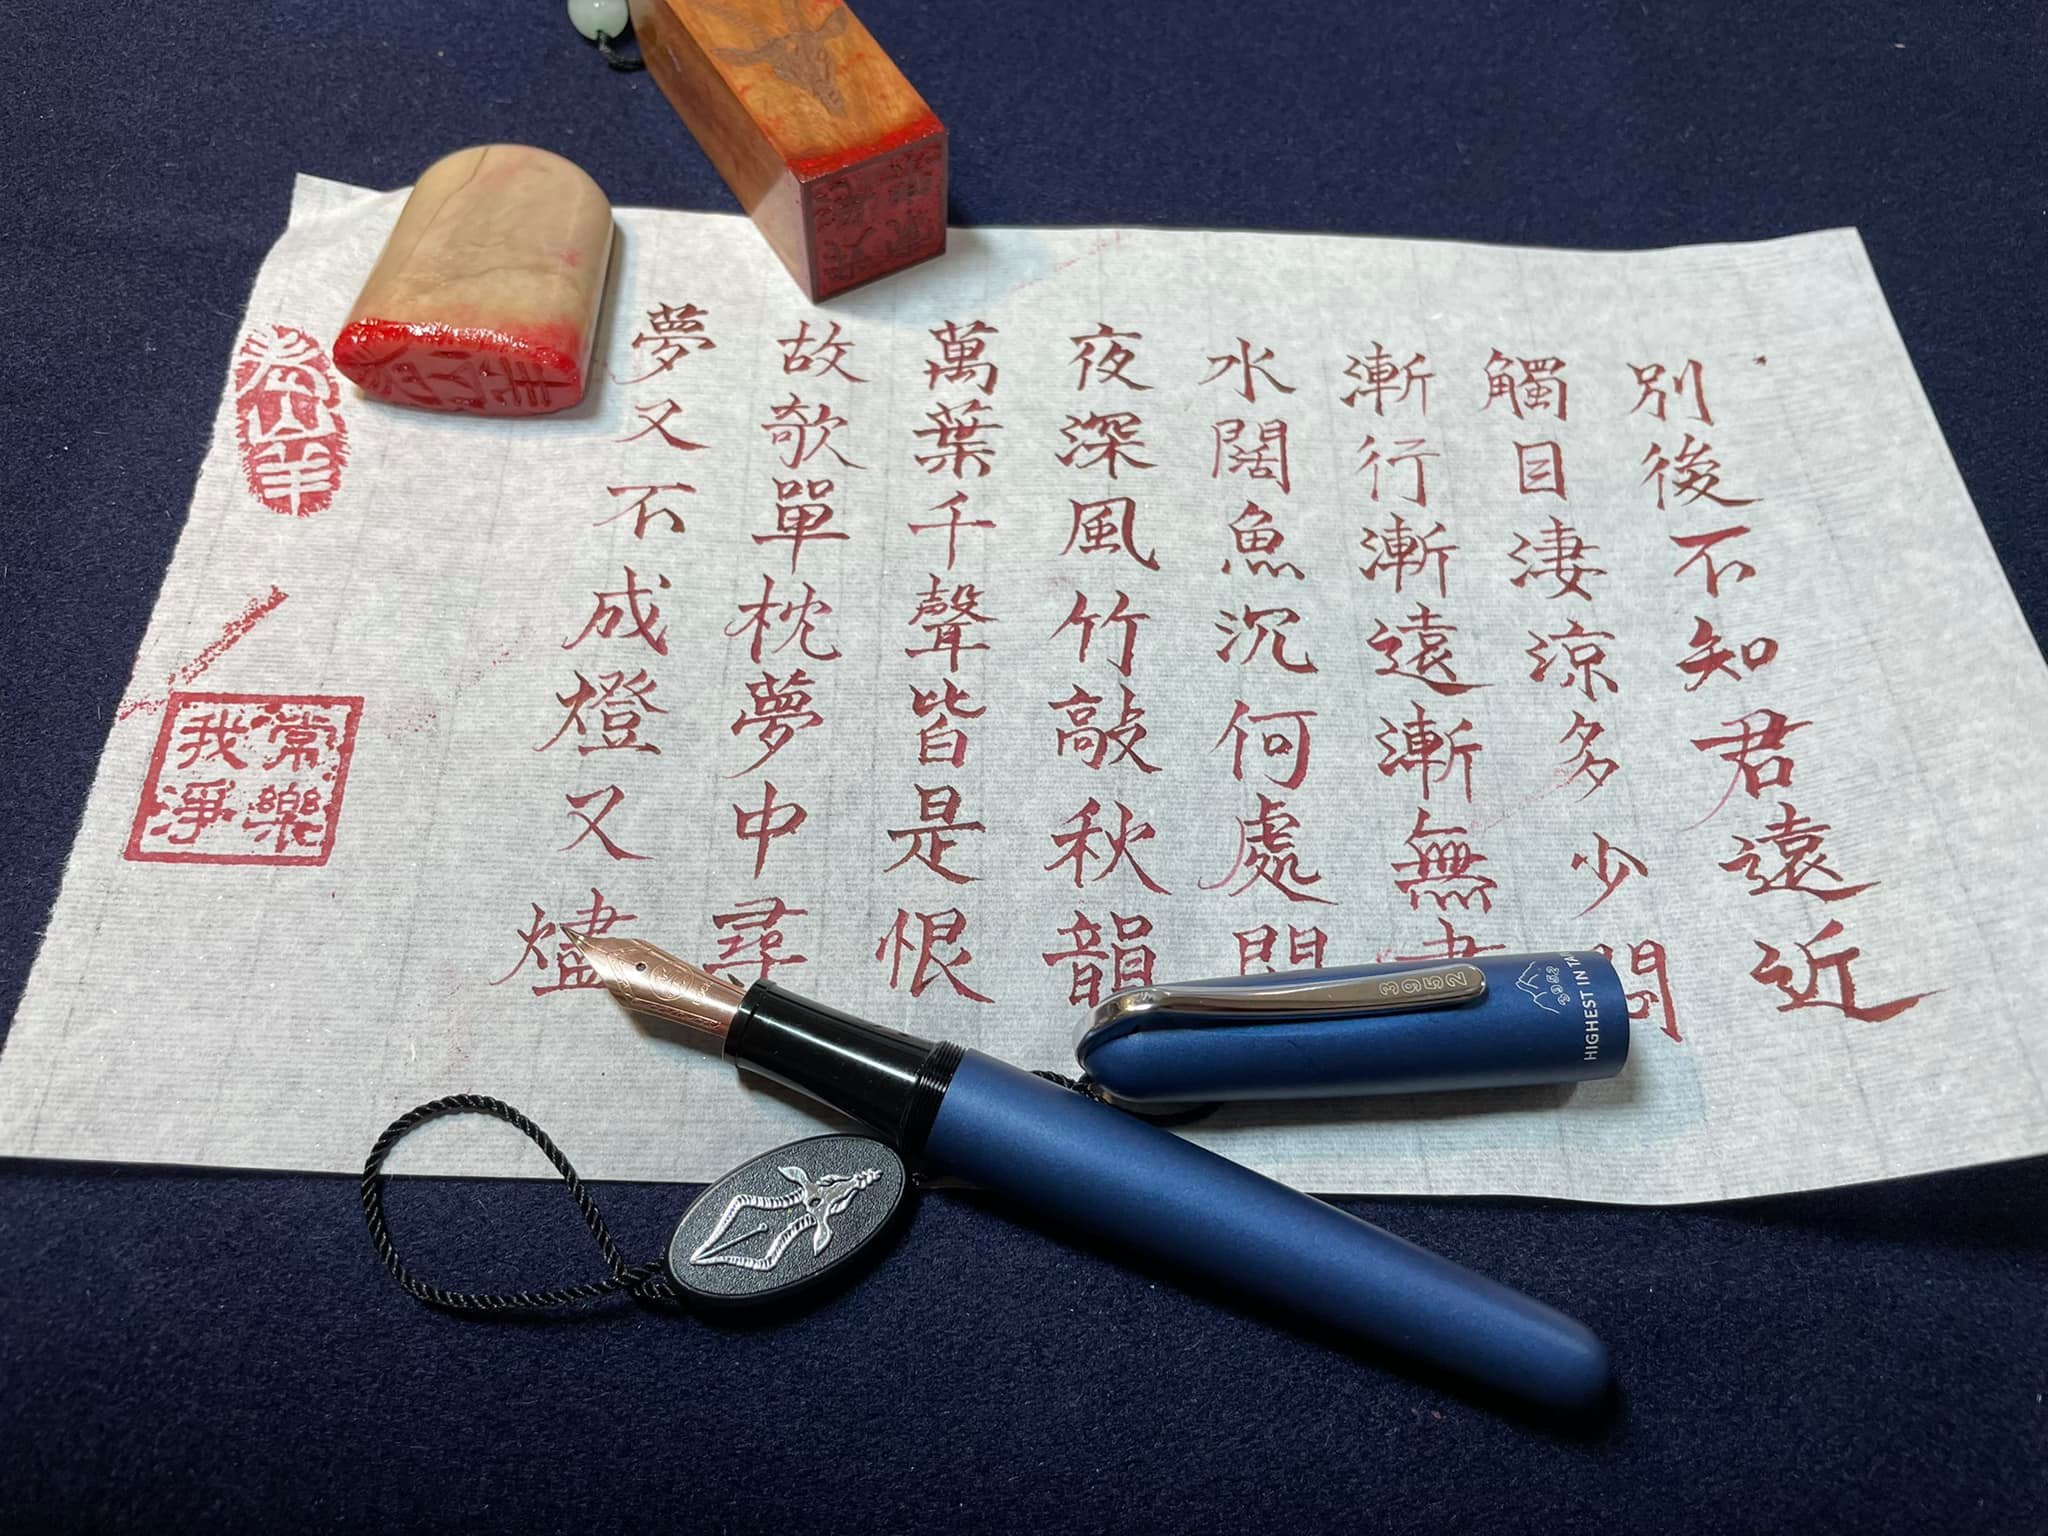 別後不知君遠近
觸目淒涼多少悶
漸行漸遠漸無書
水闊魚沉何處問
夜深風竹敲秋韻
萬葉千聲皆是恨
故欹單枕夢中尋
夢又不成燈又燼
老山羊
常樂
我淨
3952
3952
HIGHEST IN